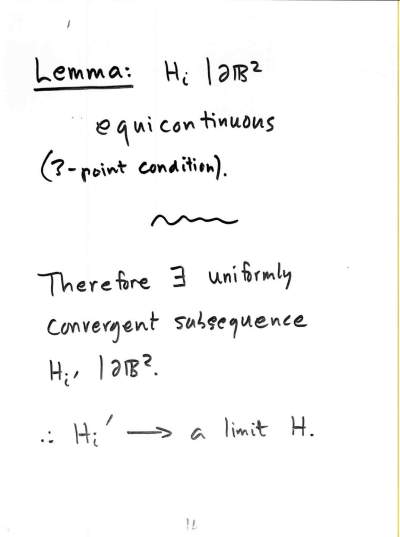 Lemma: Hᵢ |∂𝔹²
equicontinuous
(3-point condition).
Therefore ∃ uniformly
convergent subsequence
Hᵢ′ |∂𝔹².
∴ Hᵢ′ ⟶ a limit H.